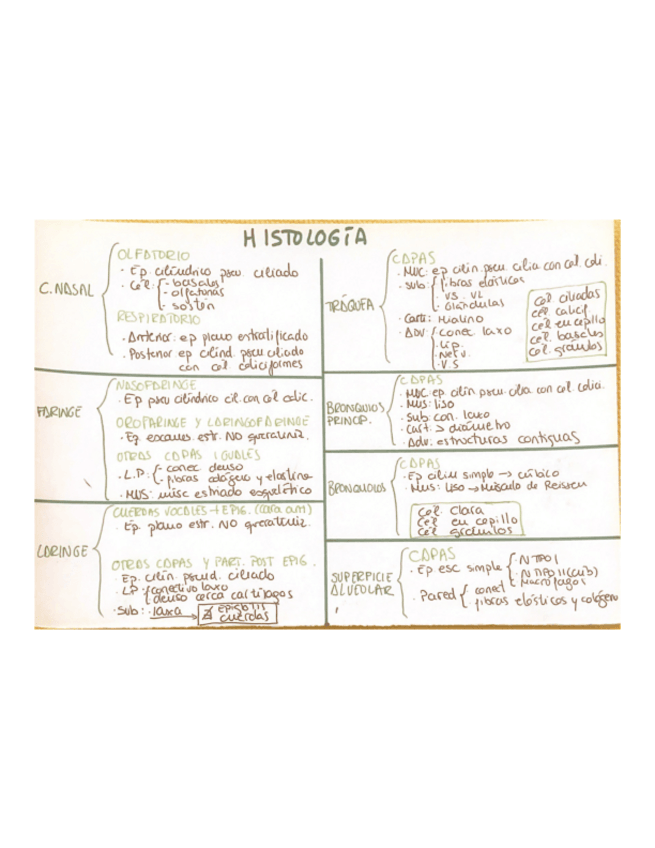 HISTOLOGÍA
C. NASAL
OLFATORIO
· Ep. cilíndrico pseu. ciliado
· Cel: - basales
- olfatorias
- sostén
RESPIRATORIO
· Anterior: ep plano estratificado
· Posterior ep cilind. pseu ciliado
con cel caliciformes
FARINGE
NASOFARINGE
· Ep pseu cilíndrico cil. con cel calic.
OROFARINGE Y LARINGOFARINGE
· Ep. escamo. estr. NO queratiniz.
OTRAS CAPAS IGUALES
· L.P: conec denso
fibras colágeno y elastina
· MUS: musc estriado esquelético
LARINGE
CUERDAS VOCALES + EPIG. (cara ant)
· Ep. plano estr. NO queratiniz.
OTRAS CAPAS Y PART. POST EPIG.
· Ep. cilin. pseud. ciliado
· LP: conectivo laxo
denso cerca cartílagos
· Sub: laxa → EPIGLOTIS
cuerdas
TRÁQUEA
CAPAS
· MUC: ep cilin. pseu. cilia con cel. cali.
· Sub: fibras elásticas
· VS. VL
· Glándulas
· Cart: Hialino
· Adv: conec laxo
· Lip.
· Nerv.
· V.S
cel ciliadas
cel calicif
cel en cepillo
cel. basales
cel. granulos
BRONQUIOS PRINCIP.
CAPAS
· MUC. ep cilin pseu. cilia con cel. calic.
· Mus: liso
· Sub con. laxo
· Cart. > diámetro
· Adv. estructuras contiguas
BRONQUIOLOS
CAPAS
· Ep cilin simple → cúbico
· Mus: liso → Músculo de Reissen
cel. clara
cel en cepillo
cel granulos
SUPERFICIE
ALVEOLAR
CAPAS
· Ep esc simple · N TIPO I
· N TIPO II (cub)
· Macrófagos
· Pared conect
fibras elásticas y colágeno